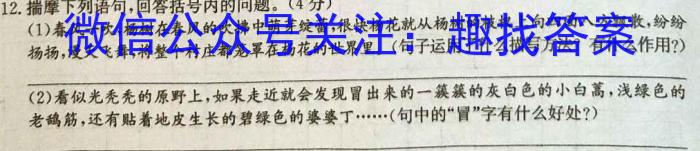 12.揣摩下列语句,回答括号内的问题。(4分)
微信公众号关注:趣找答案
(1)春 杨花就从杨树 纷纷
扬扬,漫天飞舞,将整个村庄都笼罩在杨花的世界里。(句子运用 什么作用?)
(2)看似光秃秃的原野上,如果走近就会发现冒出来的一簇簇的灰白色的小白蒿,浅绿色的
老鸹筋,还有贴着地皮生长的碧绿色的婆婆丁……(句中的“冒”字有什么好处?)